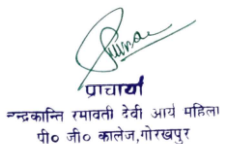 प्राचार्या
न्द्रकान्ति रमावती देवी आर्य महिला
पी० जी० कालेज,गोरखपुर